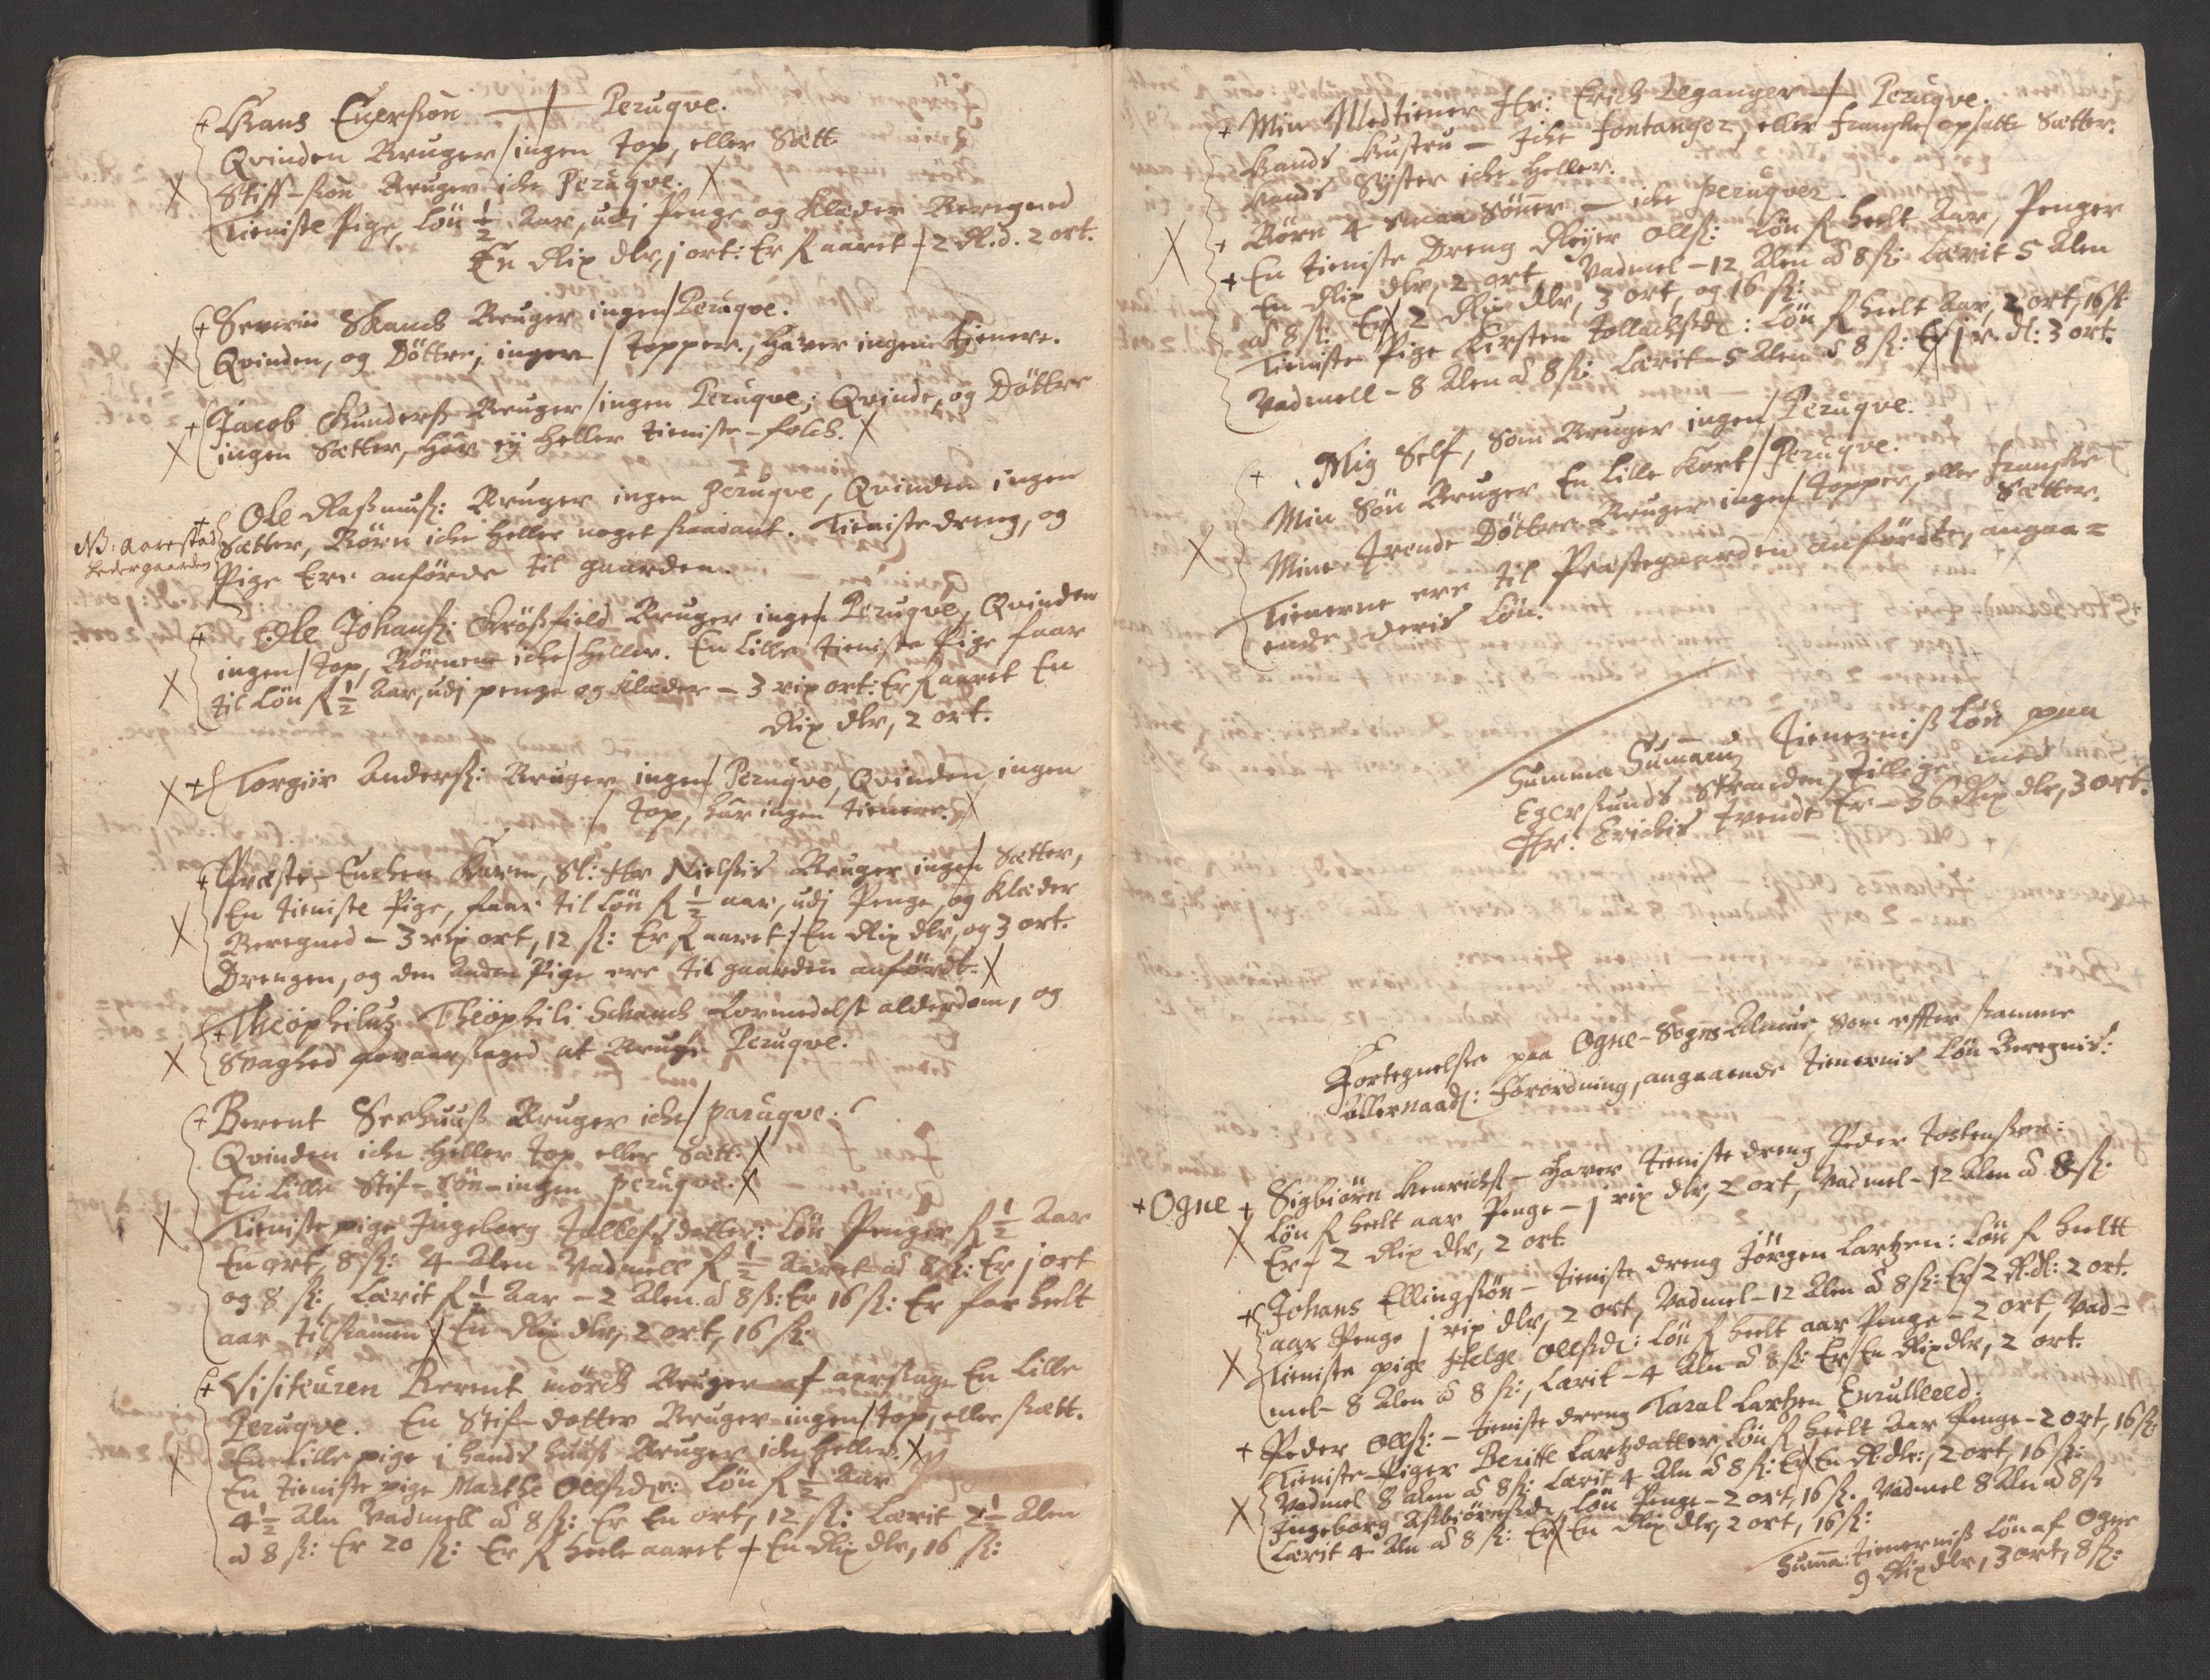 Hans Enersøn — Peruqve.
Qvinden Bruger ingen Top, eller Sætt.
Stiff-søn Bruger iche Peruqve.
Tieniste Pige, Løn ½ Aar, udj Penge og Klæder Beregned
En Rix dlr, j ort: Er aaret 2 Rd. 2 ort.
Severin Skanch Bruger ingen Peruqve.
Qvinden, og Døttre, ingen Topper, haver ingen tienere.
Jacob Gunderss Bruger ingen Peruqve, Qvinde, og Døttre
ingen Sætter, har ej heller tieniste-folch.
Ole Rasmuss: Bruger ingen Peruqve, Qvinden ingen
NB: Aarestad
Ledergaarden
Sætter, Børn iche heller noget saadant. Tienistedreng, og
Pige Ere anførde til gaarden.
Ole Johanss: Bruger ingen Peruqve, Qvinden
ingen Top, Børnene iche heller. En Lille tieniste Pige faar
til Løn ½ Aar, udj penge og Klæder – 3 rix ort: Er aaret En
Rix dlr, 2 ort.
Torgiir Anderss: Bruger ingen Peruqve, Qvinden ingen
Top, har ingen tienere.
Præste-Enchen Karen, Sl: Hr Nielsis Bruger ingen Sætter,
En tieniste Pige, faar til Løn ½ aar, udj Penge, og Klæder
Beregned – 3 rix ort, 12 s: Er aaret En Rix dlr, og 3 ort.
Drengen, og den anden Pige ere til gaarden anførdt.
Theophilus Theophili Schanch formedelst alderdom, og
Svaghed at Bruge Peruqve.
Berent Seehuus Bruger iche paruqve.
Qvinden iche heller Top eller Sætt.
En Lille Stif-Søn – ingen peruqve.
Tienistepige Ingeborg Tollefsdatter: Løn Penger ½ Aar
En ort, 8 s: 4 Alen Vadmell ½ Aaret ad 8 s: Er j ort
og 8 s:, Lærit ½ Aar – 2 Alen ad 8 s: Er 16 s: Er for heelt
aar tilsamen En Rix dlr, 2 ort, 16 s:
Visiteuren Berent Mørch Bruger af aarsage En Lille
Peruqve. En Stif-datter Bruger ingen Top, eller sætt.
En Lille pige i hands huus Bruger iche heller.
En tieniste pige Marthe Olsd: Løn ½ Aar
4½ Aln Vadmell ad 8 s: Er En ort, 12 s: Lærit 2½ Alen
ad 8 s: Er 20 s: Er heele aaret En Rix dlr, 16 s:
Min Medtiener Hr: Erich Leganger — Peruqve.
Hands Hustru – Iche fontanger, eller franske opsatte Sætter.
Hands Syster iche heller.
Børn 4 Smaa Sønner – iche peruqver.
En tieniste Dreng Reijer Olss: Løn heelt Aar, Penger
En Rix dlr, 2 ort, Vadmel – 12 Alen ad 8 s: Lærit 5 Alen
ad 8 s: Er 2 Rix dlr, 3 ort, og 16 s:
Tieniste Pige Kirsten Tollachsd: Løn heelt Aar, 2 ort, 16 s:
Vadmell – 8 Alen ad 8 s: Lærit – 5 Alen ad 8 s: Er j r. dl: 3 ort.
Mig Self, som Bruger ingen Peruqve.
Min Søn Bruger En Lille Kort Peruqve.
Mine Trende Døttre Bruger ingen Topper, eller franske
Sætter.
Tienerne ere til Præstegaarden anførdte, angaa=
ende deris Løn.
Summa Sumarum Tienernis Løn paa
Egersunds Stranden, tillige med
Hr: Erichis tvende Er – 36 Rix dlr, 3 ort.
Fortegnelse paa Ogne-Sogns Almue, som effter samme
allernaads: Forordning, angaaende tienernis Løn Beregnis:
Ogne Sigbiørn Henrichs – haver tieniste dreng Peder Tostensen:
Løn heelt aar Penge – j rix dlr, 2 ort, Vadmel – 12 Alen ad 8 s:
Er 2 Rix dlr, 2 ort.
Johans Ellingsøn – tieniste dreng Jørgen Lartzen: Løn heelt
aar Penge j rix dlr, 2 ort, Vadmel – 12 Alen ad 8 s: Er 2 R. dl: 2 ort.
Tieniste pige Helge Olsd: Løn heelt aar Penge – 2 ort, Vad=
mel – 8 Alen ad 8 s:, Lærit – 4 Aln ad 8 s: Er En Rix dlr, 2 ort.
Peder Olss: – tieniste dreng Taral Lartzen Enrulleed.
Tieniste Piger Beritte Lartzdatter, Løn heelt Aar Penge – 2 ort, 16 s:
Vadmel 8 Alen ad 8 s: Lærit 4 Aln ad 8 s: Er En R. dlr:, 2 ort, 16 s:
Ingeborg Asbiørnsd, Løn Penge – 2 ort, 16 s. Vadmel 8 Aln ad 8 s
Lærit 4 Aln ad 8 s: Er En Rix dlr, 2 ort, 16 s:
Summa: tienernis Løn af Ogne
9 Rix dlr, 3 ort, 8 s: